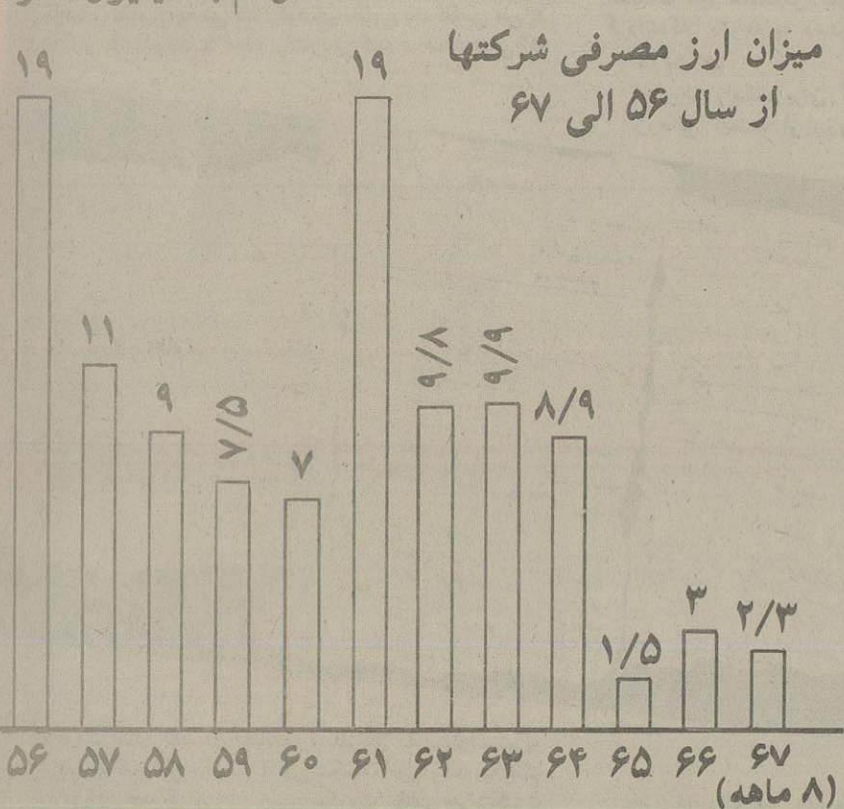 میزان ارز مصرفی شرکتها
از سال ۵۶ الی ۶۷
۱۹
۱۱
۹
۷/۵
۷
۱۹
۹/۸
۹/۹
۸/۹
۱/۵
۳
۲/۳
۵۶ ۵۷ ۵۸ ۵۹ ۶۰ ۶۱ ۶۲ ۶۳ ۶۴ ۶۵ ۶۶ ۶۷
(۸ ماهه)